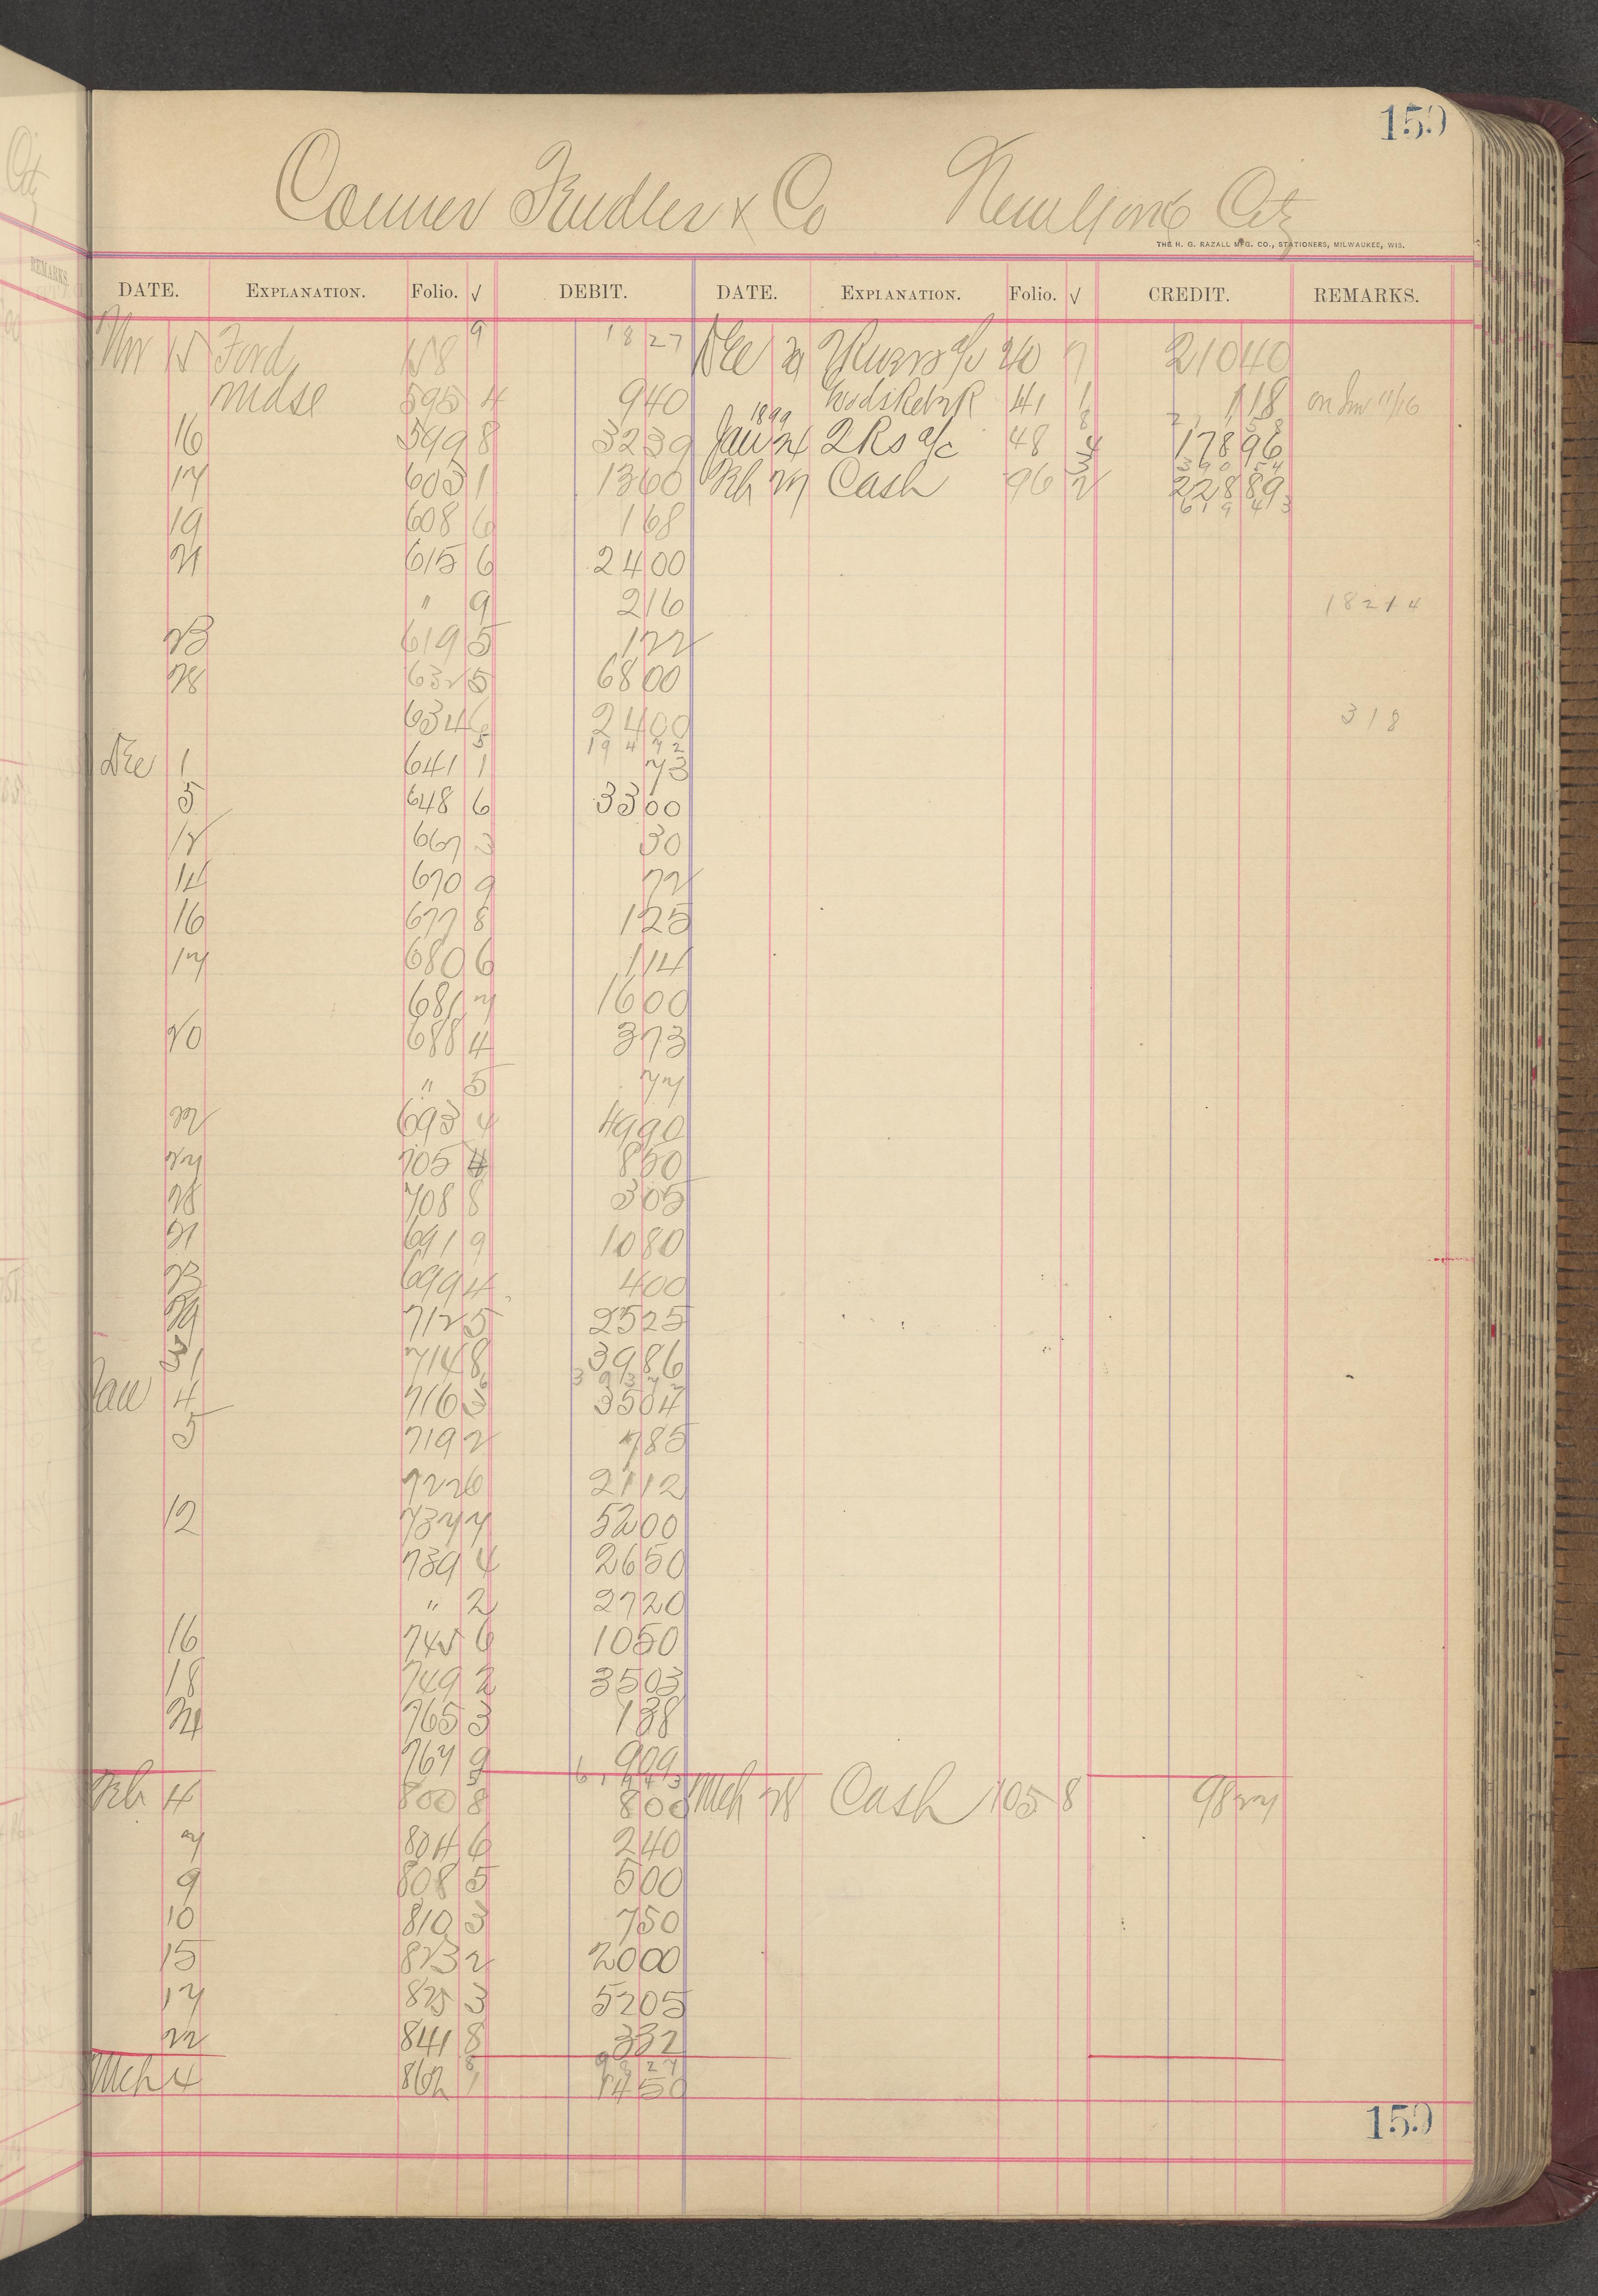 159
Conner Fendler & Co New York City
THE H. G. RAZALL MFG. CO., STATIONERS, MILWAUKEE, WIS.
DATE. EXPLANATION. Folio. √ DEBIT. DATE. EXPLANATION. Folio. √ CREDIT. REMARKS.
15 Ford 158 9 18 27 Dec 40 210 40
Mdse 595 4 9 40 41 1 1 18 on Inv 11/16
1899
16 599 8 32 39 Jan 24 2 Rs a/c 48 178 96
390 54
17 603 1 13 60 Feb 27 Cash 96 2 228 89
619 43
19 608 6 1 68
21 615 6 24 00
" 9 2 16 182 14
23 619 5 1 22
28 632 5 68 00
634 6 24 00 3 18
194 72
Dec 1 641 1 73
5 648 6 33 00
12 667 3 30
14 670 9 72
16 677 8 1 25
17 680 6 1 14
681 7 16 00
20 688 4 3 73
" 5 77
22 693 4 49 90
27 705 4 8 50
28 708 8 3 05
21 691 9 10 80
23 699 4 4 00
29 712 5 25 25
31 714 8 39 86
393 72
Jan 4 716 3 35 04
5 719 2 7 85
722 6 21 12
12 737 7 52 00
739 4 26 50
" 2 27 20
16 745 6 10 50
18 749 2 35 03
24 765 3 1 38
767 9 9 09
619 43
Feb 4 800 8 8 00 Mch 28 Cash 105 8 98 27
7 804 6 2 40
9 808 5 5 00
10 810 3 7 50
15 823 2 20 00
17 825 3 52 05
22 841 8 3 32
98 27
Mch 4 862 1 14 50
159